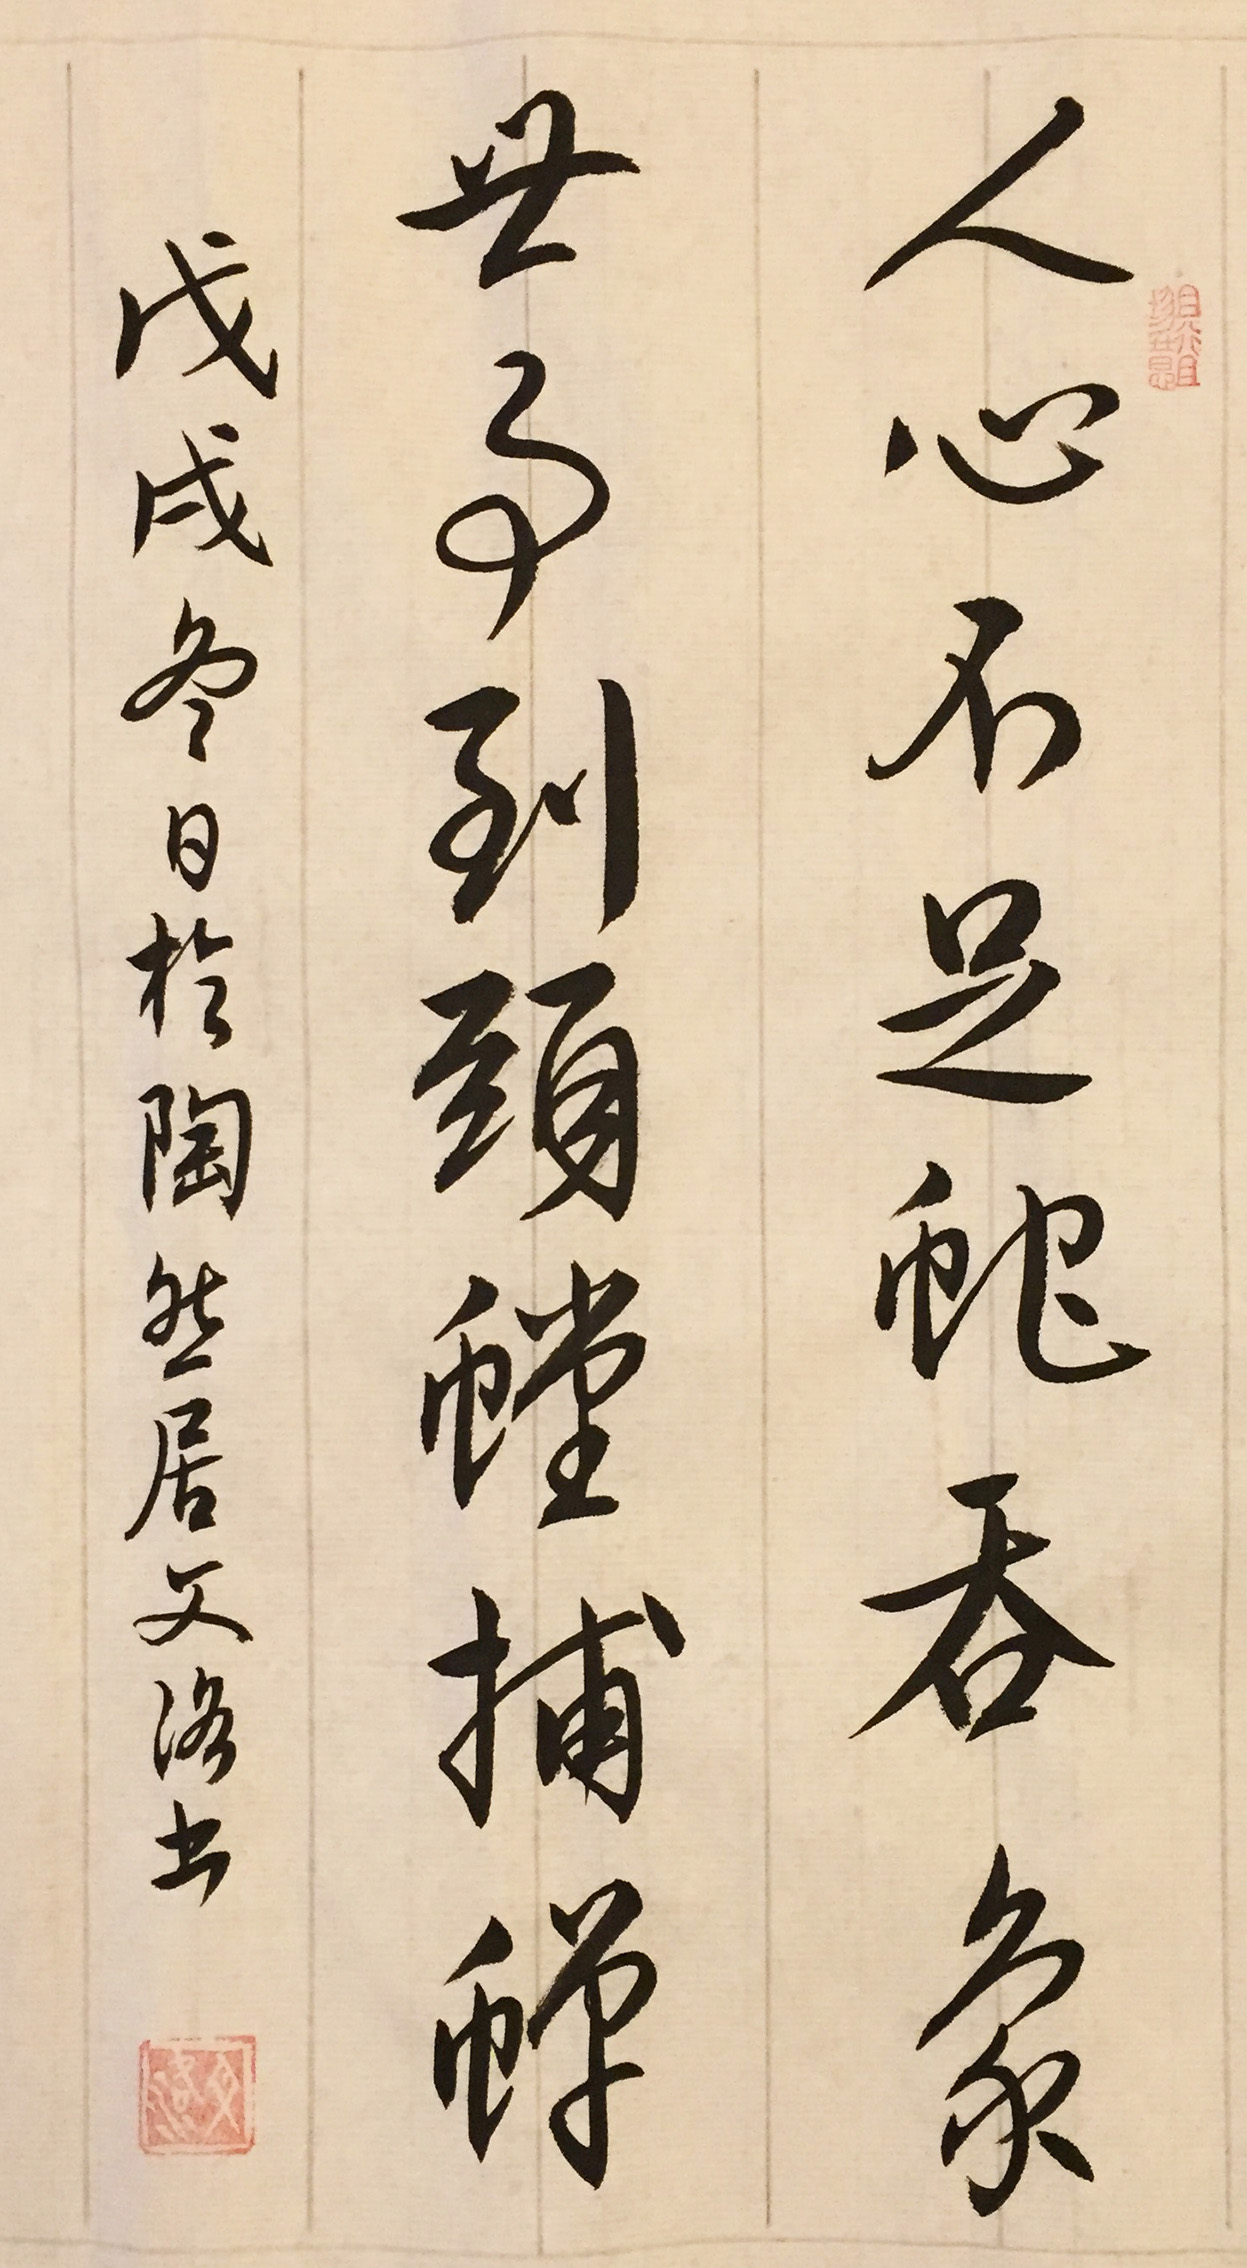 人心不足蛇吞象
世事到頭螳捕蟬
戊戌冬日於陶然居文洛书